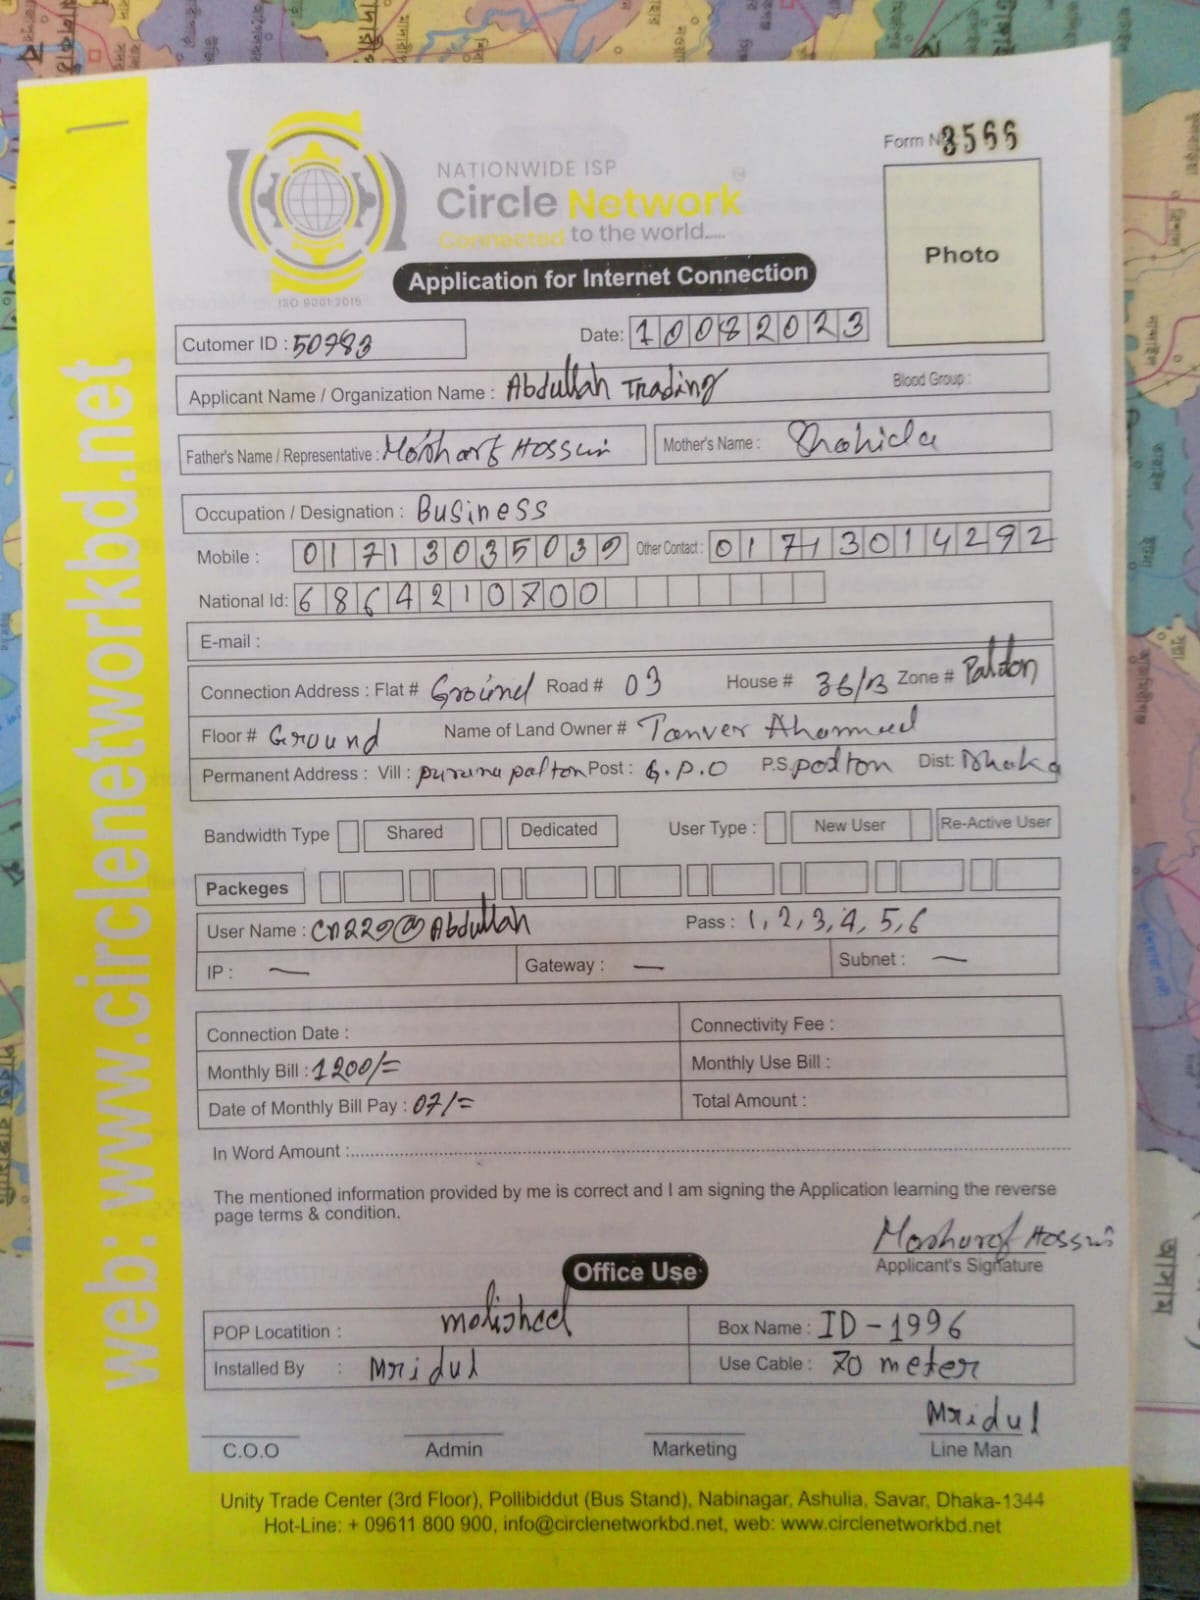 Form N 3566
NATIONWIDE ISP
Circle Network
Connected to the world.....
ISO 9001:2015
Photo
Application for Internet Connection
Cutomer ID : 50783
Date: 10082023
Applicant Name / Organization Name : Abdullah Trading Blood Group :
Father's Name / Representative : Mosharf Hossain Mother's Name : Shahida
Occupation / Designation : Business
Mobile : 01713035039 Other Contact : 01713014292
National Id: 6864210700
E-mail :
Connection Address : Flat # Ground Road # 03 House # 36/B Zone # Palton
Floor # Ground Name of Land Owner # Tanver Ahammed
Permanent Address : Vill : purana palton Post : G.P.O P.S. palton Dist: Dhaka
Bandwidth Type Shared Dedicated User Type : New User Re-Active User
Packeges
User Name : cn229@Abdullah Pass : 1,2,3,4,5,6
IP : — Gateway : — Subnet : —
Connection Date : Connectivity Fee :
Monthly Bill : 1200/= Monthly Use Bill :
Date of Monthly Bill Pay : 07/= Total Amount :
In Word Amount :
The mentioned information provided by me is correct and I am signing the Application learning the reverse
page terms & condition.
Mosharof Hossain
Applicant's Signature
Office Use
POP Locatition : motisheel Box Name : ID-1996
Installed By : Mridul Use Cable : 70 meter
Mridul
C.O.O Admin Marketing Line Man
Unity Trade Center (3rd Floor), Pollibiddut (Bus Stand), Nabinagar, Ashulia, Savar, Dhaka-1344
Hot-Line: + 09611 800 900, info@circlenetworkbd.net, web: www.circlenetworkbd.net
web: www.circlenetworkbd.net